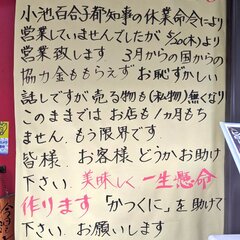 小池百合子都知事の休業命令により
営業していませんでしたが5/20(木)より
営業致します 3月からの国からの
協力金ももらえず お恥ずかしい
話しですが売る物も(私物)無くなり
このままでは お店も1ヶ月もち
ません、もう限界です
皆様、お客様 どうかお助け
下さい 美味しく一生懸命
作ります 「かつくに」を助けて
下さい お願いします